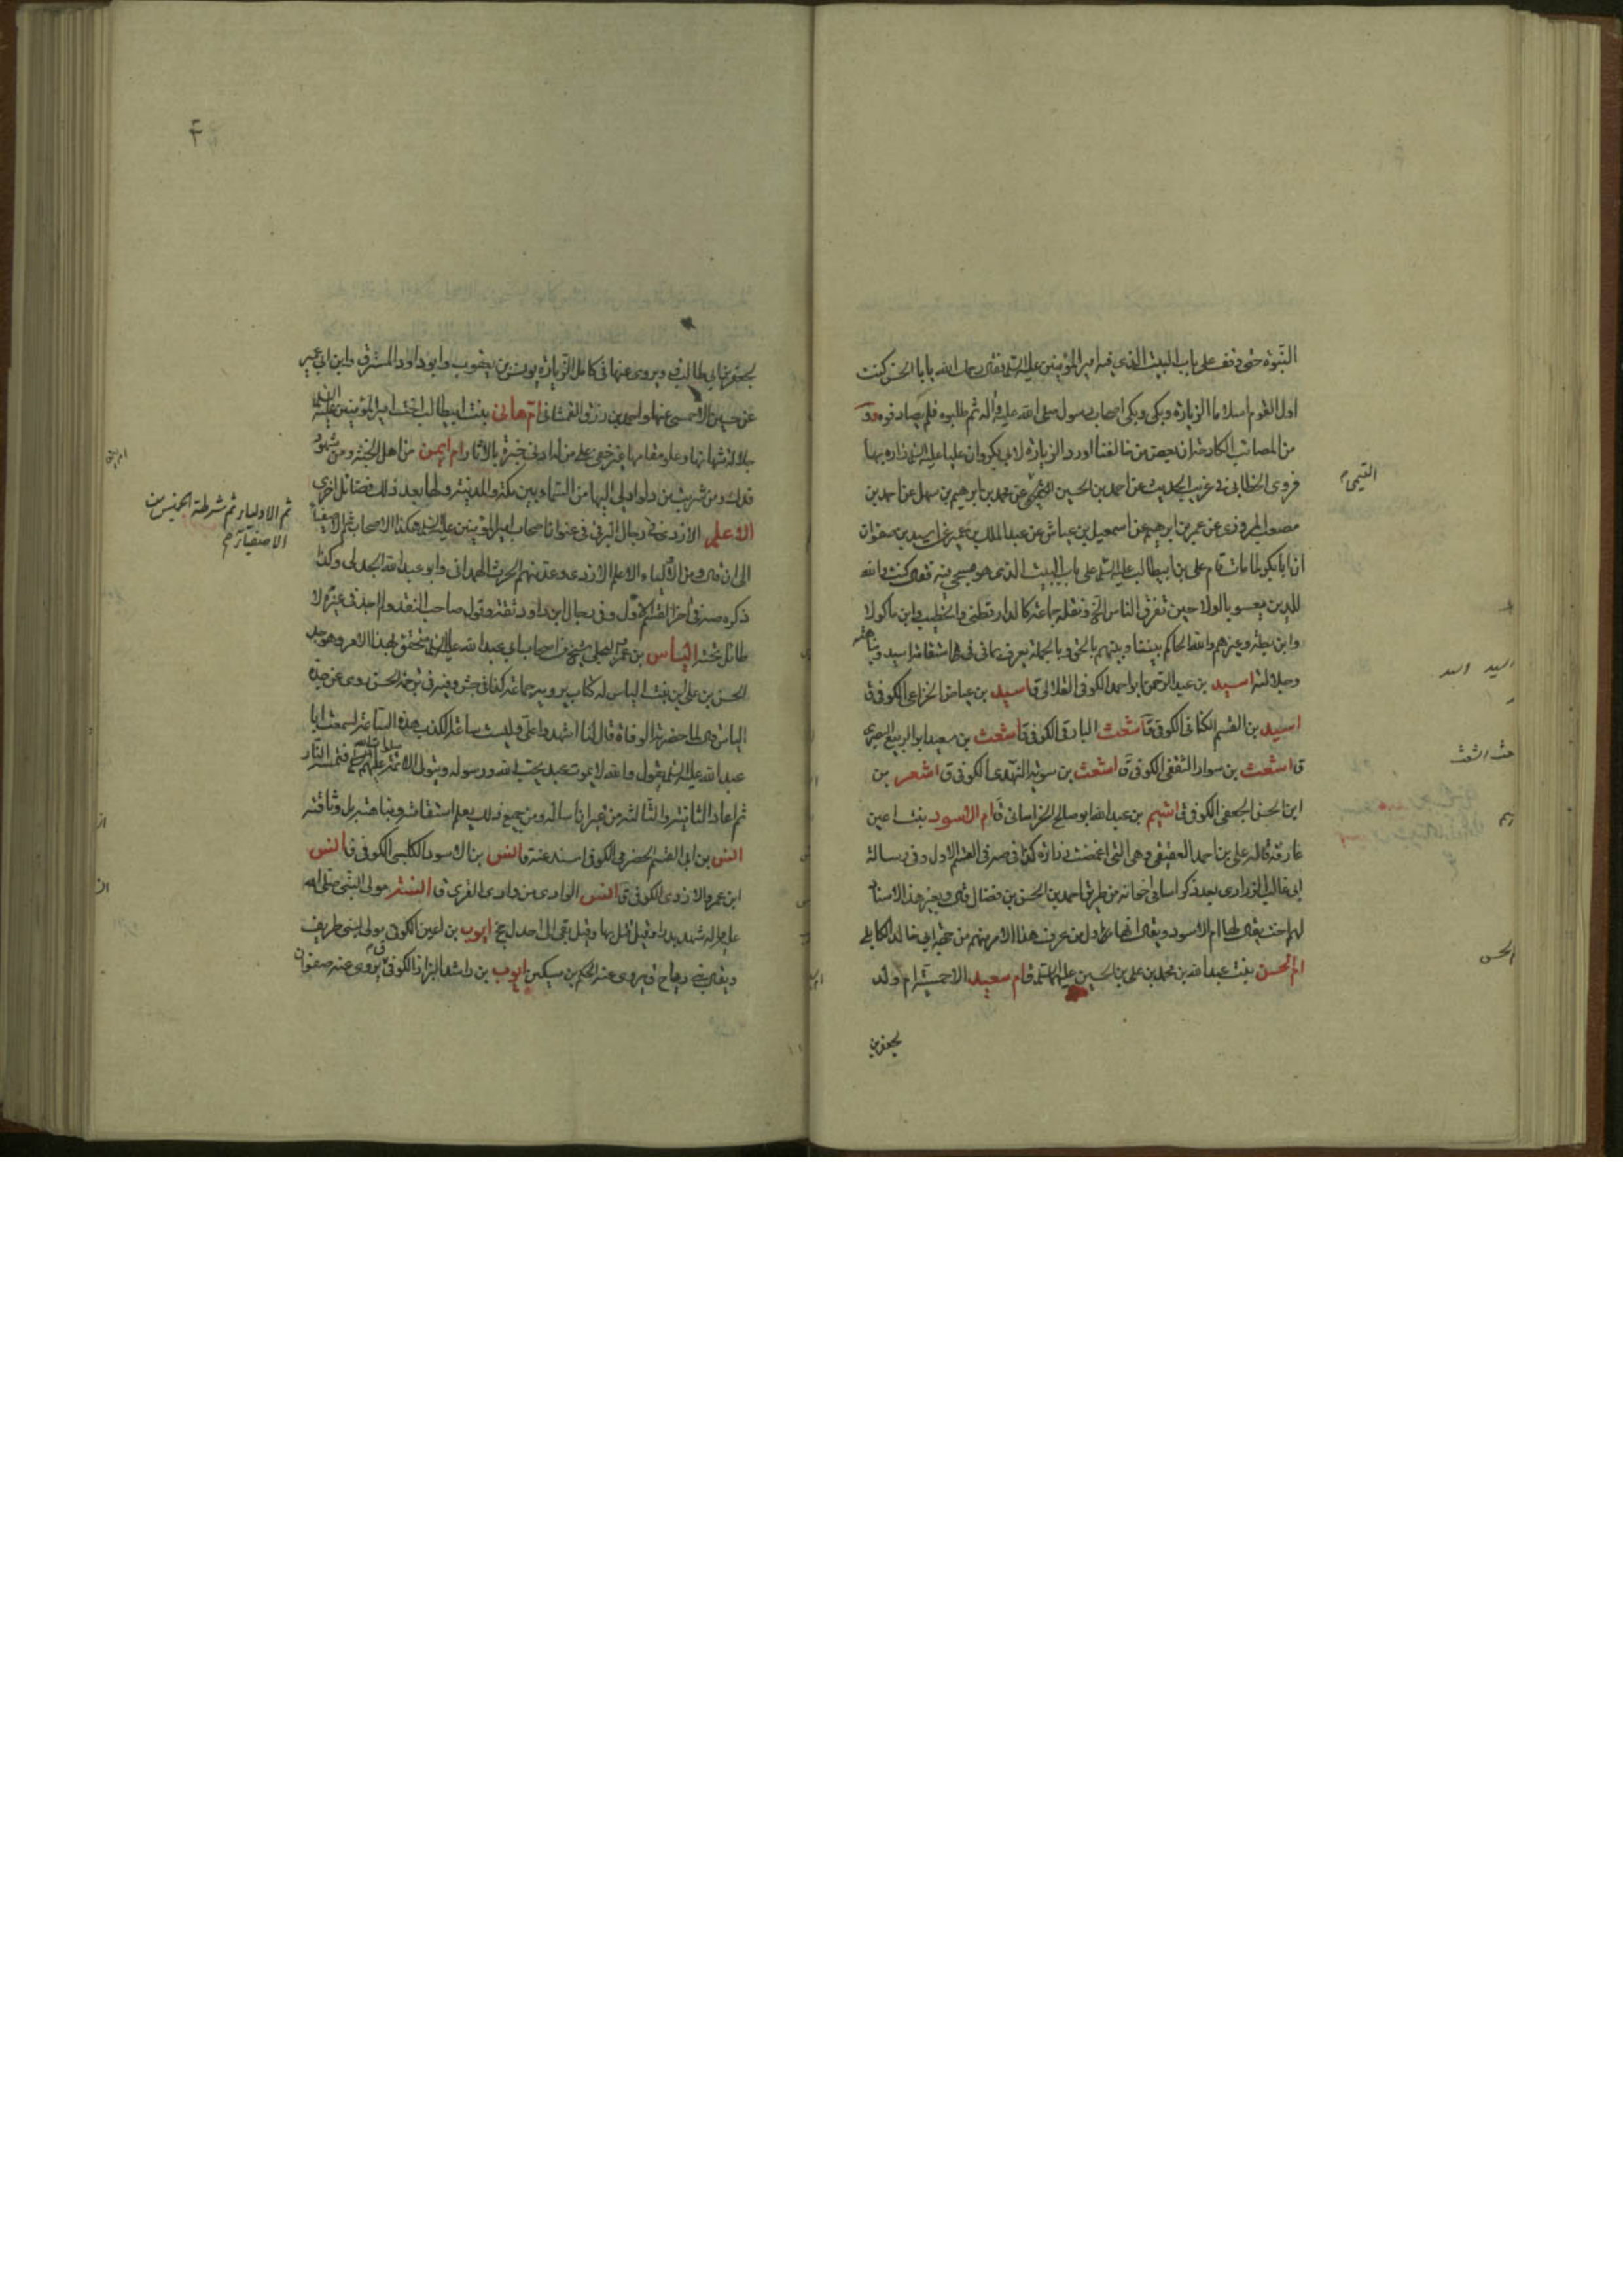 النبوة حتى وقف على باب البيت الذي فيه امير المؤمنين عليه السلم فقال رحمك الله يا ابا الحسن كنت
اول القوم اسلاما الزيارة وبكى وبكى اصحاب رسول صلى الله عليه وآله ثم طلبوه فلم يصادفوه
من المصائب الكادحة ان بعض من خالفنا اورد الزيارة لابي بكر وان عليا عليه السلم زاره بها
فروى الخطابي في غريب الحديث عن احمد بن الحسين عن محمد بن ابراهيم بن سهل عن احمد بن
التيمي
مصعب المروزي عن عمر بن ابرهيم عن اسمعيل بن عياش عن عبد الملك بن عمير عن اسيد بن صفوان
ان ابا بكر لما مات قام على بن ابيطالب عليه السلم على باب البيت الذي هو مسجى فيه فقال كنت والله
للدين يعسوبا اولا حين تفرق الناس الخ ونقله جماعة كالدارقطني والخطيب وابن ماكولا
وابن بطة وغيرهم والله الحاكم بيننا وبينهم بالحق وبالجملة يعرف مما في استقامة اسيد
وجلالته اسيد بن عبد الرحمن ابو احمد الكوفي ق اسيد بن عياض الخزاعي الكوفي ق
اسيد بن القسم الكناني الكوفي ق اشعث البارقي الكوفي ق اشعث بن سعيد ابو الربيع البصري
ق اشعث بن سوار الثقفي الكوفي ق اشعث بن سويد النهدي الكوفي ق اشعر بن
ابن الحسن الجعفي الكوفي ق اشيم بن عبد الله ابو صالح الخراساني ق ام الاسود بنت اعين
عارفة قاله على بن احمد العقيقي وهي التي اغمضت زرارة كذا في صه في القسم الاول وفي رسالة
ابي غالب الزراري بعد ذكر اسامي اخوانه من طريق احمد بن الحسن بن فضال قال وبغير هذا الاسناد
لهم اخت يقال لها ام الاسود ويقال انها اول من عرف هذا الامر منهم من جهة ابي خالد الكابلي
ام الحسن بنت عبد الله بن محمد بن على بن الحسين عليهم السلم ق ام سعيد الاحمسية ام ولد
لجعفر بن
لجعفر بن ابي طالب ق ويروى عنها في كامل الزيارة يونس بن يعقوب وابو داود المسترق وابن ابي عمير
عن حسين الاحمسي عنها واحمد بن رزق الغمشاني ام هاني بنت ابيطالب اخت امير المؤمنين عليه السلم
جلالة شانها وعلو مقامها غير خفي على من له ادنى خبرة بالاثار ام ايمن من اهل الجنة ومن شهود
فدك ومن شربت من دلو ادلى اليها من السماء بين مكة والمدينة ولها بعد ذلك فضائل اخرى
الاعلم الازدي في رجال البرقي في عنوان اصحاب امير المؤمنين عليه السلم هكذا الاصحاب ثم الاصفياء
ثم الاولياء ثم شرطة الخميس من
الاصفياء
الى ان قال ومن الاولياء الاعلم الازدي وعد منهم الحرث الهمداني وابو عبد الله الجدلي وكذا
ذكره صه في آخر القسم الاول وفي رجال ابن داود ثقة وقول صاحب النقد ولم اجد في غيره لا
طائل تحته الياس بن عمرو البجلي شيخ من اصحاب ابي عبد الله عليه السلم متحقق بهذا الامر وهو جد
الحسن بن على بن بنت الياس له كتاب يرويه جماعة كذا في جش وفيه في ترجمة الحسن روى عن جده
الياس قال لما حضرته الوفاة قال لنا اشهدوا على وليست ساعة الكذب هذه الساعة لسمعت ابا
عبد الله عليه السلم يقول والله لا يموت عبد يحب الله ورسوله ويتولى الائمة عليهم السلم فتمسه النار
ثم اعاد الثانية والثالثة من غير ان اساله ومن جميع ذلك يعلم استقامته ونباهته بل وثاقته
انس بن ابي القسم الحضرمي الكوفي اسند عنه ق انس بن الاسود الكلبي الكوفي ق انس
ابن عمرو الازدي الكوفي ق انس الوادي من وادي القرى ق انسة مولى النبي صلى الله
عليه وآله شهد بدرا وقيل قتل بها وقيل بقى الى احد ل يخ ايوب بن اعين الكوفي مولى بني طريف
ويقال بني رياح ق يروى عنه الحكم بن مسكين ايوب بن راشد البزاز الكوفي ق يروى عنه صفوان